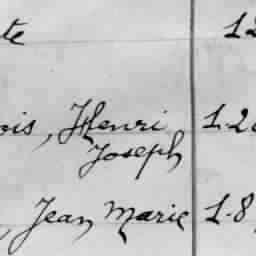 te 12
ois, Henri 1.20
Joseph
, Jean Marie 1.8